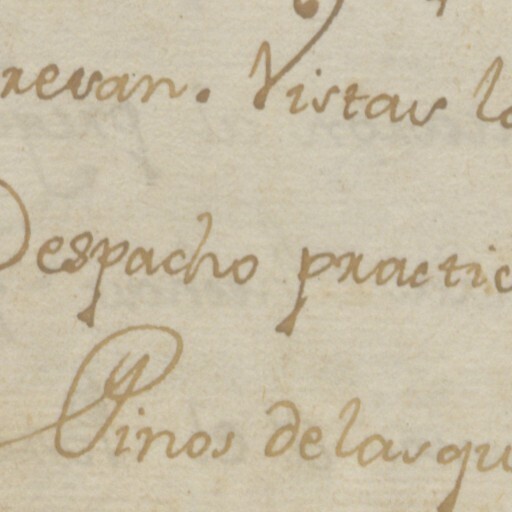 revan. Vistas la
Despacho practic
Pinos de las qu